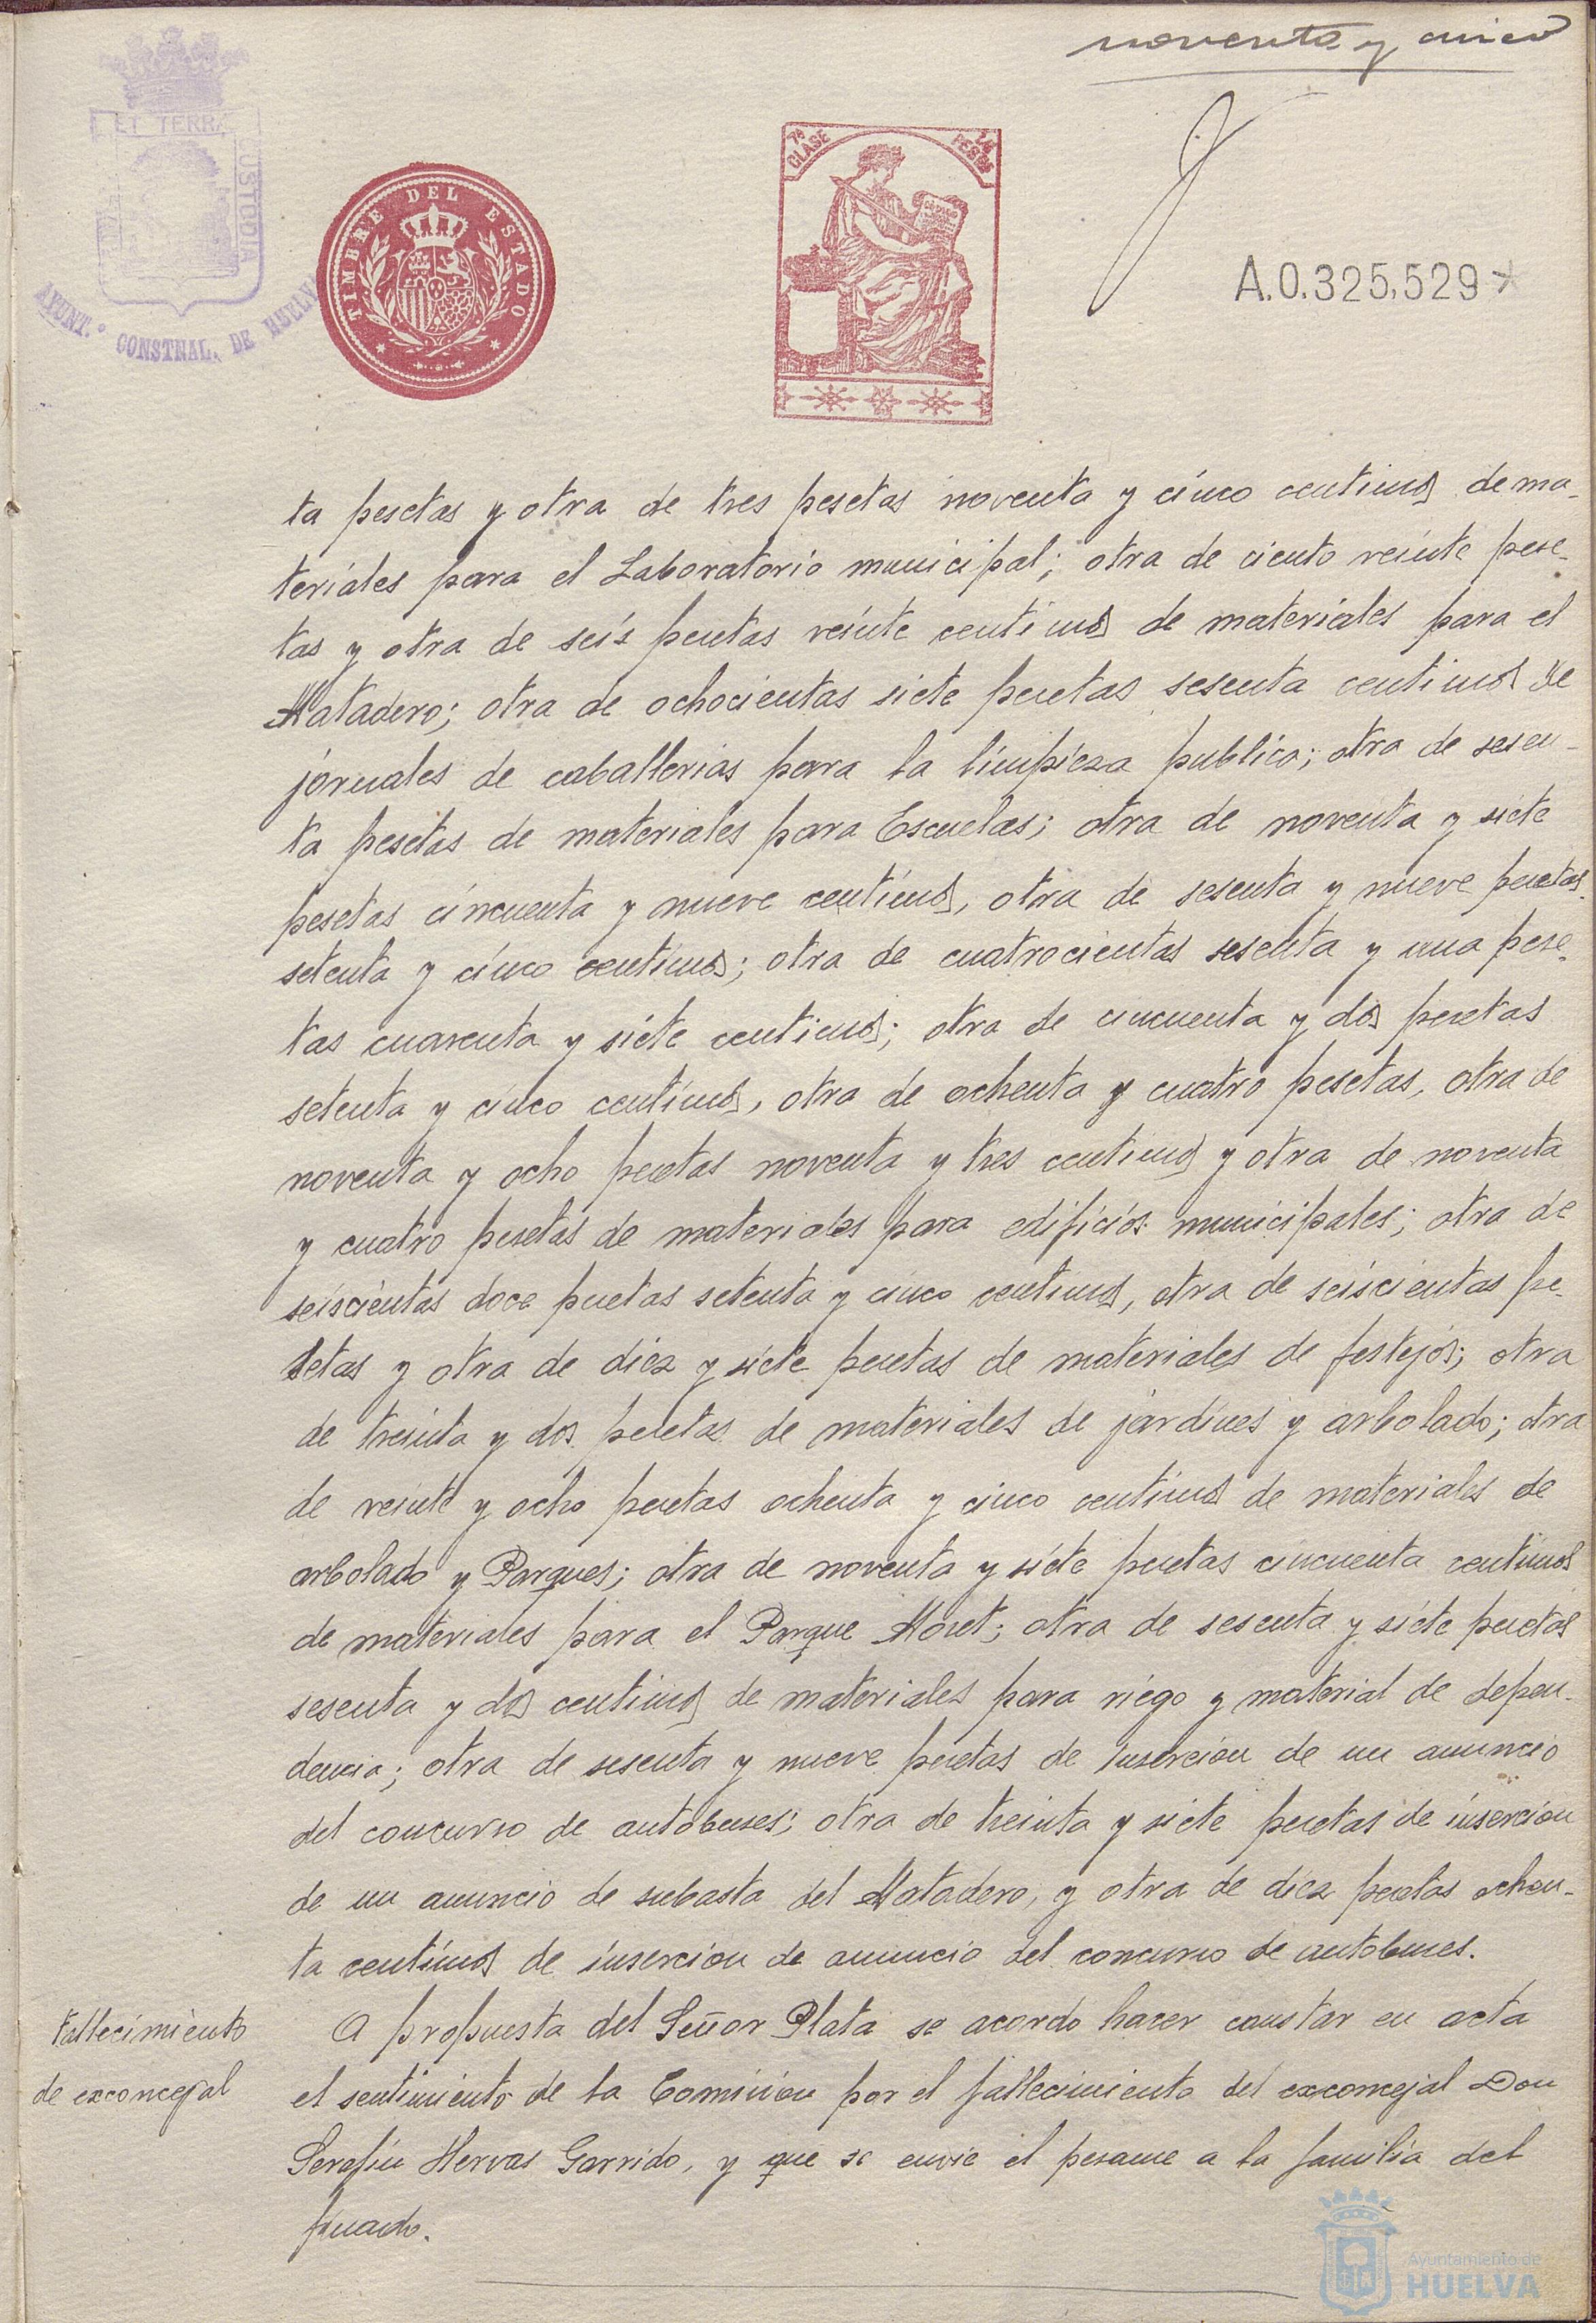 noventa y cinco
ET TERRÆ
USTODIA
AYUNT.º CONSTNAL. DE HUELVA
TIMBRE DEL ESTADO
7ª CLASE
PESETAS
A.0.325,529
ta pesetas y otra de tres pesetas noventa y cinco centimos de ma-
teriales para el Laboratorio municipal; otra de ciento veinte pese-
tas y otra de seis pesetas veinte centimos de materiales para el
Matadero; otra de ochocientas siete pesetas sesenta centimos de
jornales de caballerias para la limpieza publica; otra de sesen-
ta pesetas de materiales para Escuelas; otra de noventa y siete
pesetas cincuenta y nueve centimos, otra de sesenta y nueve pesetas
setenta y cinco centimos; otra de cuatrocientas sesenta y una pese-
tas cuarenta y siete centimos; otra de cincuenta y dos pesetas
setenta y cinco centimos, otra de ochenta y cuatro pesetas, otra de
noventa y ocho pesetas noventa y tres centimos y otra de noventa
y cuatro pesetas de materiales para edificios municipales; otra de
seiscientas doce pesetas setenta y cinco centimos, otra de seiscientas pe-
setas y otra de diez y siete pesetas de materiales de festejos; otra
de treinta y dos pesetas de materiales de jardines y arbolado; otra
de veinte y ocho pesetas ochenta y cinco centimos de materiales de
arbolado y Parques; otra de noventa y siete pesetas cincuenta centimos
de materiales para el Parque Moret; otra de sesenta y siete pesetas
sesenta y dos centimos de materiales para riego y material de depen-
dencia; otra de sesenta y nueve pesetas de insercion de un anuncio
del concurso de autobuses; otra de treinta y siete pesetas de insercion
de un anuncio de subasta del Matadero, y otra de diez pesetas ochen-
ta centimos de insercion de anuncio del concurso de autobuses.
Fallecimiento
de exconcejal
A propuesta del Señor Plata se acordo hacer constar en acta
el sentimiento de la Comision por el fallecimiento del exconcejal Don
Serafin Hervas Garrido, y que se envie el pesame a la familia del
finado.
Ayuntamiento de
HUELVA